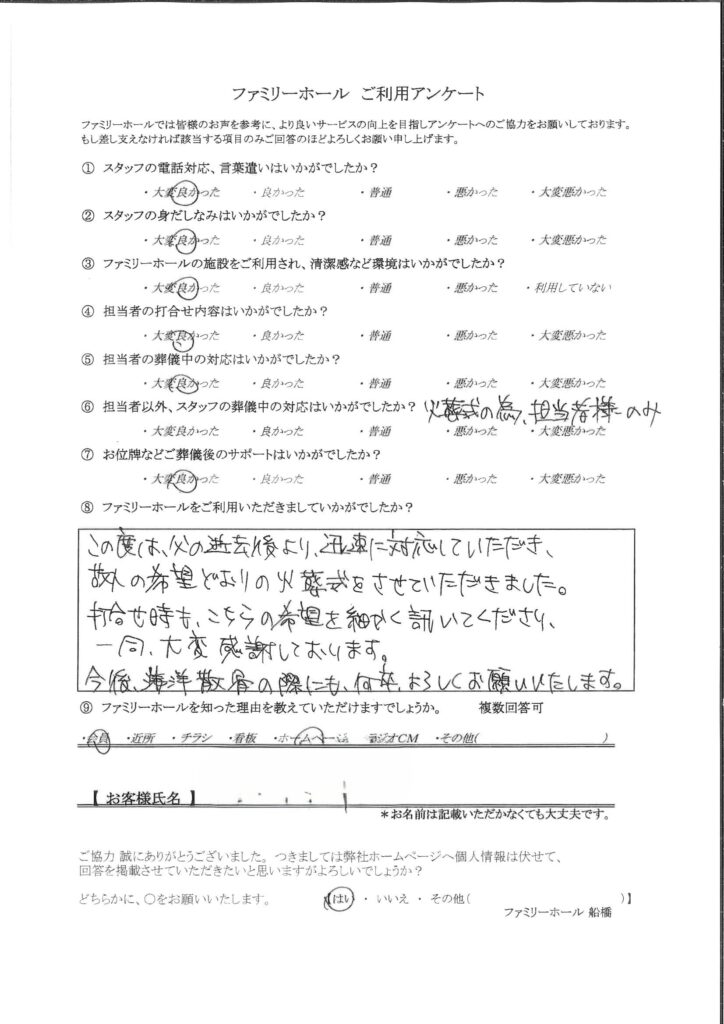 ファミリーホール ご利用アンケート
ファミリーホールでは皆様のお声を参考に、より良いサービスの向上を目指しアンケートへのご協力をお願いしております。
もし差し支えなければ該当する項目のみご回答のほどよろしくお願い申し上げます。
① スタッフの電話対応、言葉遣いはいかがでしたか？
・大変良かった ・良かった ・普通 ・悪かった ・大変悪かった
② スタッフの身だしなみはいかがでしたか？
・大変良かった ・良かった ・普通 ・悪かった ・大変悪かった
③ ファミリーホールの施設をご利用され、清潔感など環境はいかがでしたか？
・大変良かった ・良かった ・普通 ・悪かった ・利用していない
④ 担当者の打合せ内容はいかがでしたか？
・大変良かった ・良かった ・普通 ・悪かった ・大変悪かった
⑤ 担当者の葬儀中の対応はいかがでしたか？
・大変良かった ・良かった ・普通 ・悪かった ・大変悪かった
⑥ 担当者以外、スタッフの葬儀中の対応はいかがでしたか？ 火葬式の為、担当者様のみ
・大変良かった ・良かった ・普通 ・悪かった ・大変悪かった
⑦ お位牌などご葬儀後のサポートはいかがでしたか？
・大変良かった ・良かった ・普通 ・悪かった ・大変悪かった
⑧ ファミリーホールをご利用いただきましていかがでしたか？
この度は、父の逝去後より、迅速に対応していただき、
故人の希望どおりの火葬式をさせていただきました。
打合せ時も、こちらの希望を細かく訊いてくださり、
一同、大変感謝しております。
今後、海洋散骨の際にも、何卒、よろしくお願いいたします。
⑨ ファミリーホールを知った理由を教えていただけますでしょうか。 複数回答可
・会員 ・近所 ・チラシ ・看板 ・ホームページ ・ラジオCM ・その他( )
【 お客様氏名 】
＊お名前は記載いただかなくても大丈夫です。
ご協力 誠にありがとうございました。つきましては弊社ホームページへ個人情報は伏せて、
回答を掲載させていただきたいと思いますがよろしいでしょうか？
どちらかに、〇をお願いいたします。 【はい ・ いいえ ・ その他( )】
ファミリーホール 船橋